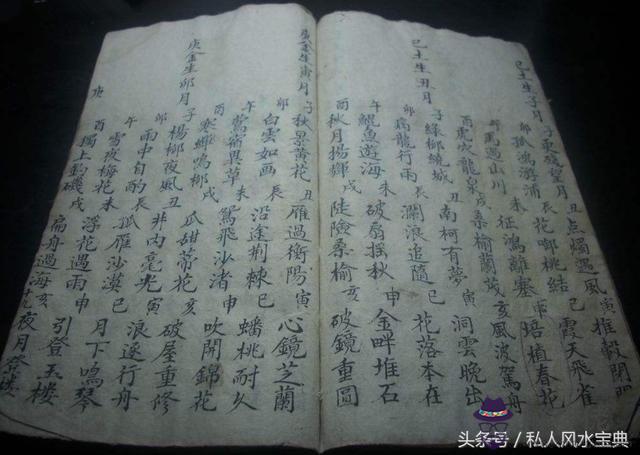 己土生子月 子更殘望月 丑点燭遇風 寅推轂開門
卯孤鴻游浦 辰花啣桃結 巳霞天飛雀
馬過山川 未征鴻離塞 申培植春花
酉虎吹龍泉 戌桑榆蘭茂 亥風波駕舟
己土生丑月 子綠柳繞城 丑南柯有夢 寅洞雲晚出
卯病龍行雨 辰瀾浪追隨 巳花落本在
午鯉魚遊海 未破扇摇秋 申金畔堆石
酉秋月揚輝 戌陡險桑榆 亥破鏡重圓
庚金生寅月 子秋景黄花 丑雁過衡陽 寅心鏡芝蘭
卯白雲如画 辰沿途荆棘 巳蟠桃耐久
午鶯 異草 未鴛飛沙渚 申吹開錦花
酉寒蟬鳴柳 戌瓜甜蒂花 亥破屋重修
庚金生卯月 子楊柳夜風 丑井内毫光 寅浪逐行舟
卯雨中自酌 辰孤雁沙漠 巳月下鳴琴
午雪夜梅花 未浮花遇雨 申引登玉楼
酉獨上釣磯 戌扁舟過海 亥夜月登楼
庚
头条号／私人风水宝典